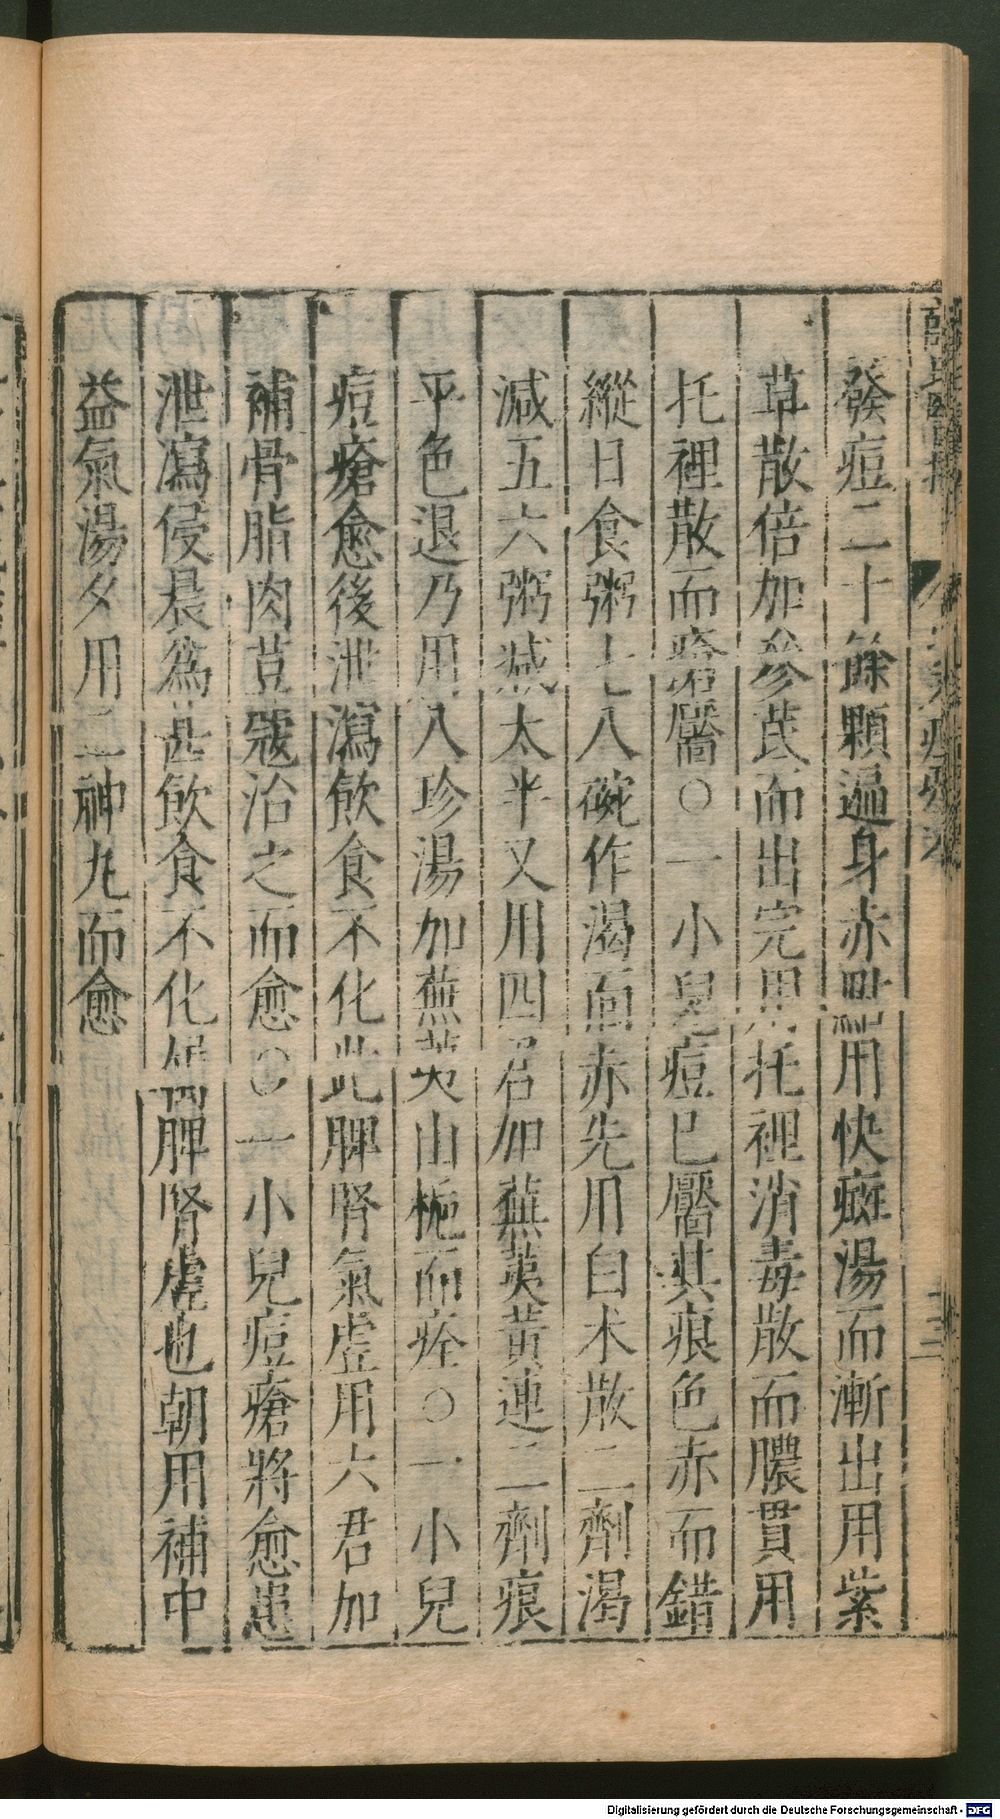 發痘二十餘顆遍身赤點用快癍湯而漸出用紫
草散倍加參芪而出完用托裡消毒散而膿貫用
托裡散而瘡靨○一小兒痘已靨其痕色赤而錯
縱日食粥七八碗作渴面赤先用白朮散二劑渴
減五六粥減太半又用四君加蕪荑黃連二劑痕
平色退乃用八珍湯加蕪荑山梔而痊○一小兒
痘瘡愈後泄瀉飲食不化此脾腎氣虛用六君加
補骨脂肉荳蔻治之而愈○一小兒痘瘡將愈患
泄瀉侵晨為甚飲食不化属脾腎虛也朝用補中
益氣湯夕用二神丸而愈
十三
Digitalisierung gefördert durch die Deutsche Forschungsgemeinschaft - DFG